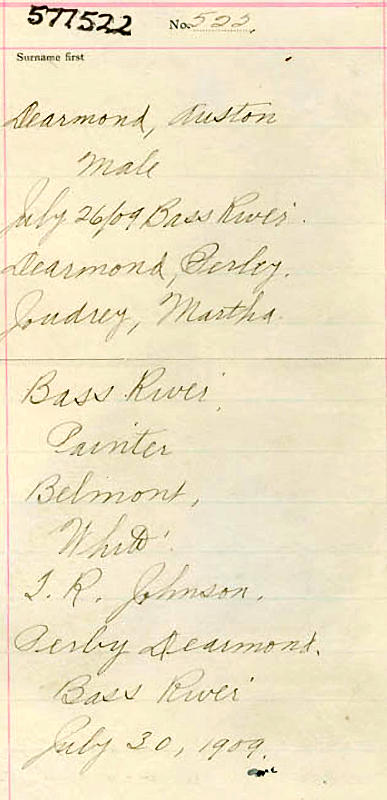 577522
No. 522
Surname first
Dearmond, Auston
Male
July 26/09 Bass River.
Dearmond, Perley.
Joudrey, Martha
Bass River
Painter
Belmont,
J. R. Johnson.
Perley Dearmond.
Bass River
July 30, 1909.